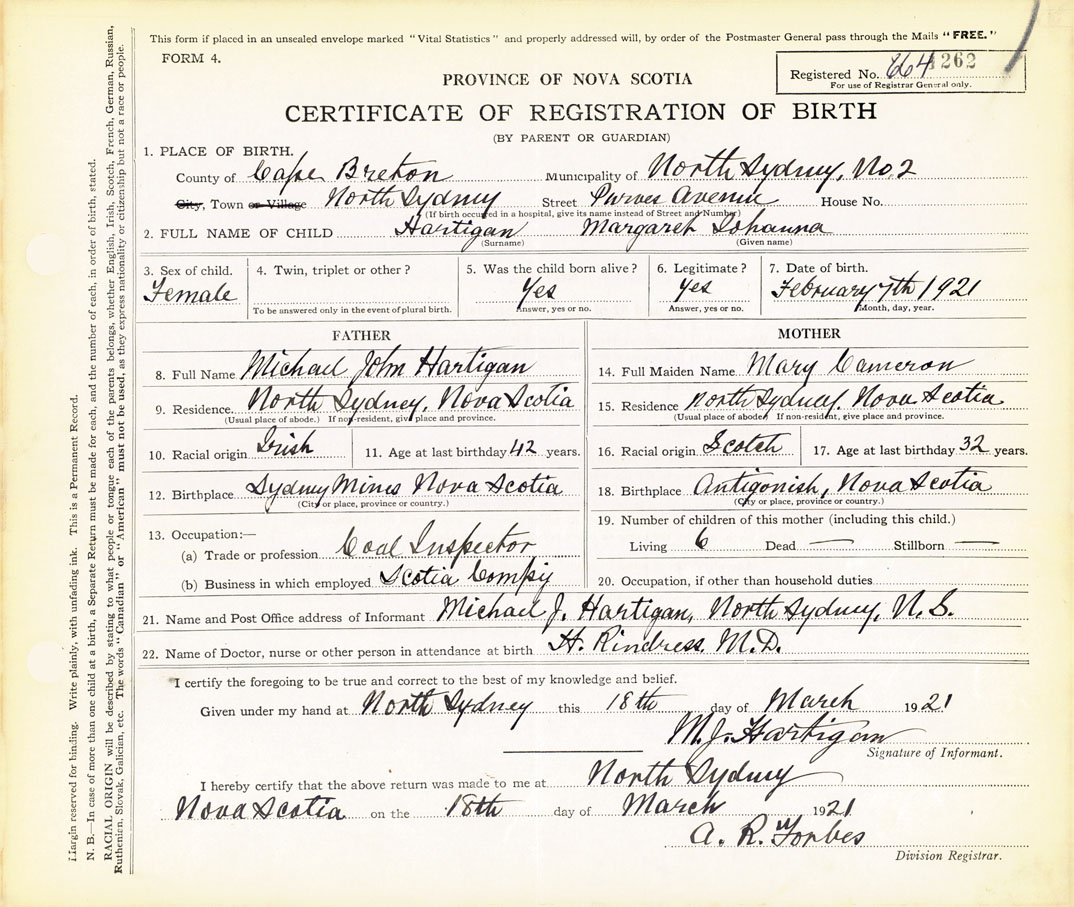 This form if placed in an unsealed envelope marked "Vital Statistics" and properly addressed will, by order of the Postmaster General pass through the Mails "FREE."
FORM 4.
Registered No. 664 1262
For use of Registrar General only.
PROVINCE OF NOVA SCOTIA
CERTIFICATE OF REGISTRATION OF BIRTH
(BY PARENT OR GUARDIAN)
1. PLACE OF BIRTH.
County of Cape Breton Municipality of North Sydney, No. 2
City, Town or Village North Sydney Street Purves Avenue House No.
(If birth occurred in a hospital, give its name instead of Street and Number)
2. FULL NAME OF CHILD Hartigan Margaret Johanna
(Surname) (Given name)
3. Sex of child. 4. Twin, triplet or other? 5. Was the child born alive? 6. Legitimate? 7. Date of birth.
Female Yes Yes February 7th 1921
To be answered only in the event of plural birth. Answer, yes or no. Answer, yes or no. Month, day, year.
FATHER
8. Full Name Michael John Hartigan
9. Residence. North Sydney, Nova Scotia
(Usual place of abode.) If non-resident, give place and province.
10. Racial origin Irish 11. Age at last birthday 42 years.
12. Birthplace Sydney Mines Nova Scotia
(City or place, province or country.)
13. Occupation:—
(a) Trade or profession Coal Inspector
(b) Business in which employed Scotia Compy
MOTHER
14. Full Maiden Name Mary Cameron
15. Residence North Sydney, Nova Scotia
(Usual place of abode) If non-resident, give place and province.
16. Racial origin Scotch 17. Age at last birthday 32 years.
18. Birthplace Antigonish, Nova Scotia
(City or place, province or country.)
19. Number of children of this mother (including this child.)
Living 6 Dead — Stillborn —
20. Occupation, if other than household duties
21. Name and Post Office address of Informant Michael J. Hartigan, North Sydney, N.S.
22. Name of Doctor, nurse or other person in attendance at birth H. Rindress. M.D.
I certify the foregoing to be true and correct to the best of my knowledge and belief.
Given under my hand at North Sydney this 18th day of March 1921
M. J. Hartigan
Signature of Informant.
I hereby certify that the above return was made to me at North Sydney
Nova Scotia on the 18th day of March 1921
A. R. Forbes
Division Registrar.
Margin reserved for binding. Write plainly, with unfading ink. This is a Permanent Record.
N. B.—In case of more than one child at a birth, a Separate Return must be made for each, and the number of each, in order of birth, stated.
RACIAL ORIGIN will be described by stating to what people or tongue each of the parents belongs, whether English, Irish, Scotch, French, German, Russian,
Ruthenien, Slovak, Galician, etc. The words "Canadian" or "American" must not be used, as they express nationality or citizenship but not a race or people.